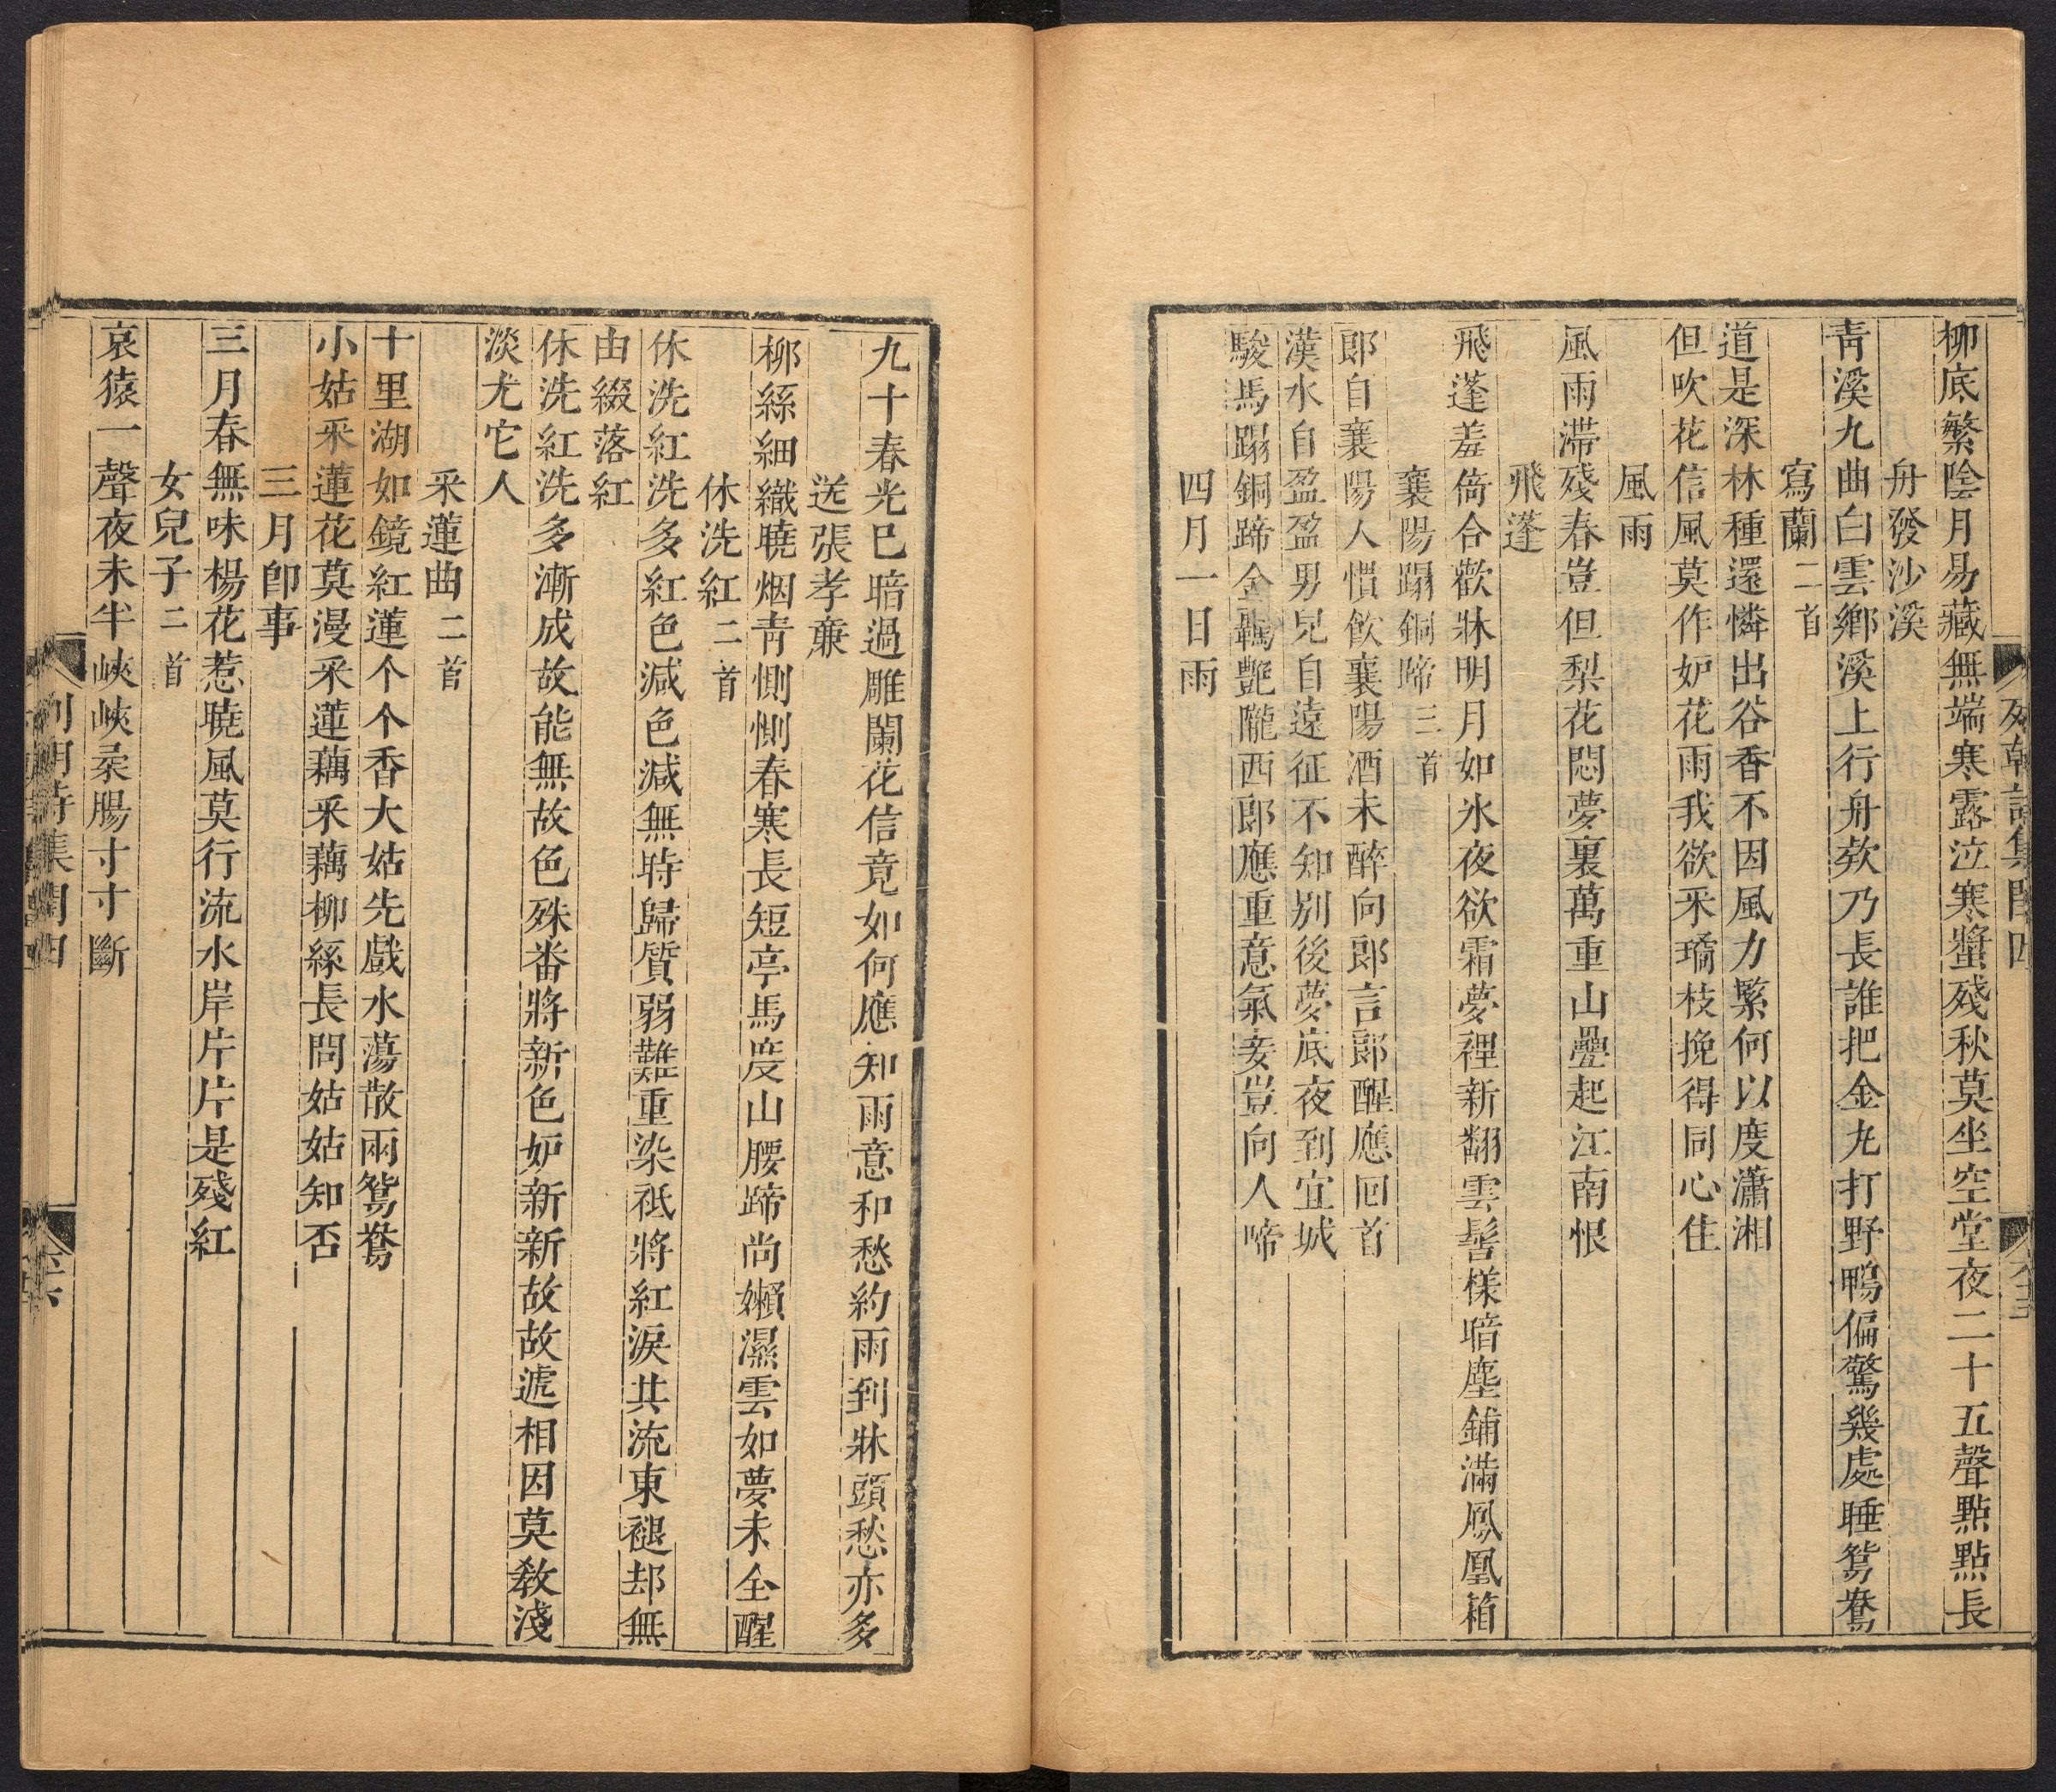 柳底繁陰月易藏無端寒露泣寒螿殘秋莫坐空堂夜二十五聲點點長
舟發沙溪
靑溪九曲白雲鄉溪上行舟欸乃長誰把金丸打野鴨偏驚幾處睡鴛鴦
寫蘭二首
道是深林種還憐出谷香不因風力緊何以度瀟湘
但吹花信風莫作妒花雨我欲采璚枝挽得同心住
風雨
風雨滯殘春豈但梨花悶夢裏萬重山疊起江南恨
飛蓬
飛蓬羞倚合歡牀明月如氷夜欲霜夢裡新翻雲髻樣暗塵鋪滿鳳凰箱
襄陽蹋銅啼三首
郞自襄陽人慣飲襄陽酒未醉向郞言郞醒應回首
漢水自盈盈男兒自遠征不知別後夢底夜到宜城
駿馬蹋銅蹄金羈艷隴西郞應重意氣妾豈向人啼
四月一日雨
列朝詩集閏四
九十春光已暗過雕闌花信竟如何應知雨意和愁約雨到牀頭愁亦多
送張孝亷
柳絲細織曉烟靑惻惻春寒長短亭馬度山腰蹄尚嬾濕雲如夢未全醒
休洗紅二首
休洗紅洗多紅色減色減無時歸質弱難重染祇將紅淚共流東褪却無
由綴落紅
休洗紅洗多漸成故能無故色殊畨將新色妒新新故故遞相因莫敎淺
淡尤它人
采蓮曲二首
十里湖如鏡紅蓮个个香大姑先戲水蕩散兩鴛鴦
小姑采蓮花莫漫采蓮藕采藕柳絲長問姑姑知否
三月卽事
三月春無味楊花惹曉風莫行流水岸片片是殘紅
女兒子二首
哀猿一聲夜未半峽峽柔腸寸寸斷
列朝詩集閏四